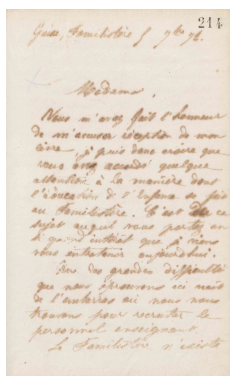 214
Guise, Familistère 5 9bre 76.
Madame,
Vous m'avez fait l'honneur
de m'accuser réception de mon
livre, je puis donc croire que
vous avez accordé quelque
attention à la manière dont
l'éducation de l'enfance se fait
au Familistère. C'est de ce
sujet auquel vous portez un
si grand intérêt que je viens
vous entretenir aujourd'hui.
des grandes difficultés
que nous éprouvons ici naît
de l'embarras où nous nous
trouvons pour recruter le
personnel enseignant.
Le Familistère n'existe